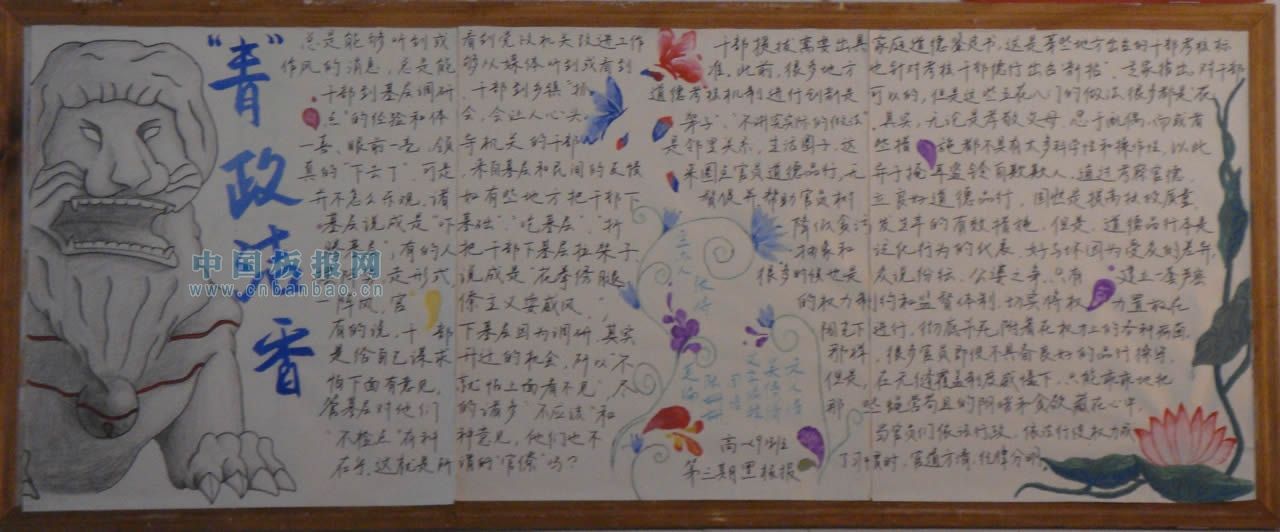 “青”政洁香
总是能够听到或看到党政机关改进工作
作风的消息，总是能够从媒体听到或看到
干部到基层调研，干部到乡镇“抓
点”的经验和体会，会让人心头
一喜，眼前一亮，领导机关的干部
真的“下去了”。可是，来自基层和民间的反馈
并不怎么乐观，诸如有些地方把干部下
基层说成是“吓基础”、“吃基层”、“折
腾基层”，有的人把干部下基层拉架子
走形式说成是“花拳绣腿”
阵风，官僚主义耍威风
有的说，干部下基层因为调研，其实
是给自己谋求升迁的机会，所以“不
怕下面有意见，就怕上面看不见”，尽
管基层对他们的诸多“不应该”和
“不检点”有种种意见，他们也不
在乎，这就是所谓的“官僚”吗？
干部提拔需要出具家庭道德鉴定书，这是某些地方出台的干部考核标
准。此前，很多地方也针对考核干部德行出台“新招”。专家指出，对干部
道德考核机制进行创新是可以的，但是这些五花八门的做法很多都是“花
架子”、“不讲究实际的做法”。其实，无论是孝敬父母、忠于配偶，抑或者
是邻里关系、生活圈子，这些措施都不具有太多科学性和操作性，以此
来圈点官员道德品行，无异于掩耳盗铃自欺欺人，通过考察官德，
督促并帮助官员树立良好道德品行，固然是提高执政质量、
降低贪污发生率的有效措施，但是，道德品行本是
抽象和泛化行为的代表，好与坏因为受众的差异，
很多时候也是众说纷纭、公婆之争。只有建立一套严密
的权力制约和监督体制，切实将权力置于
阳光下进行，彻底
那样，很多官员即便不具备良好的品行操守，
但是，在无缝覆盖制度威慑下，只能乖乖地把
那些蝇营苟且的阴暗和贪欲藏在心中，
当官员们依法行政、依法行使权力成
了习惯时，官道方清，纪律分明。
高一(9)班
第二期黑板报
中国板报网
www.cnbanbao.cn